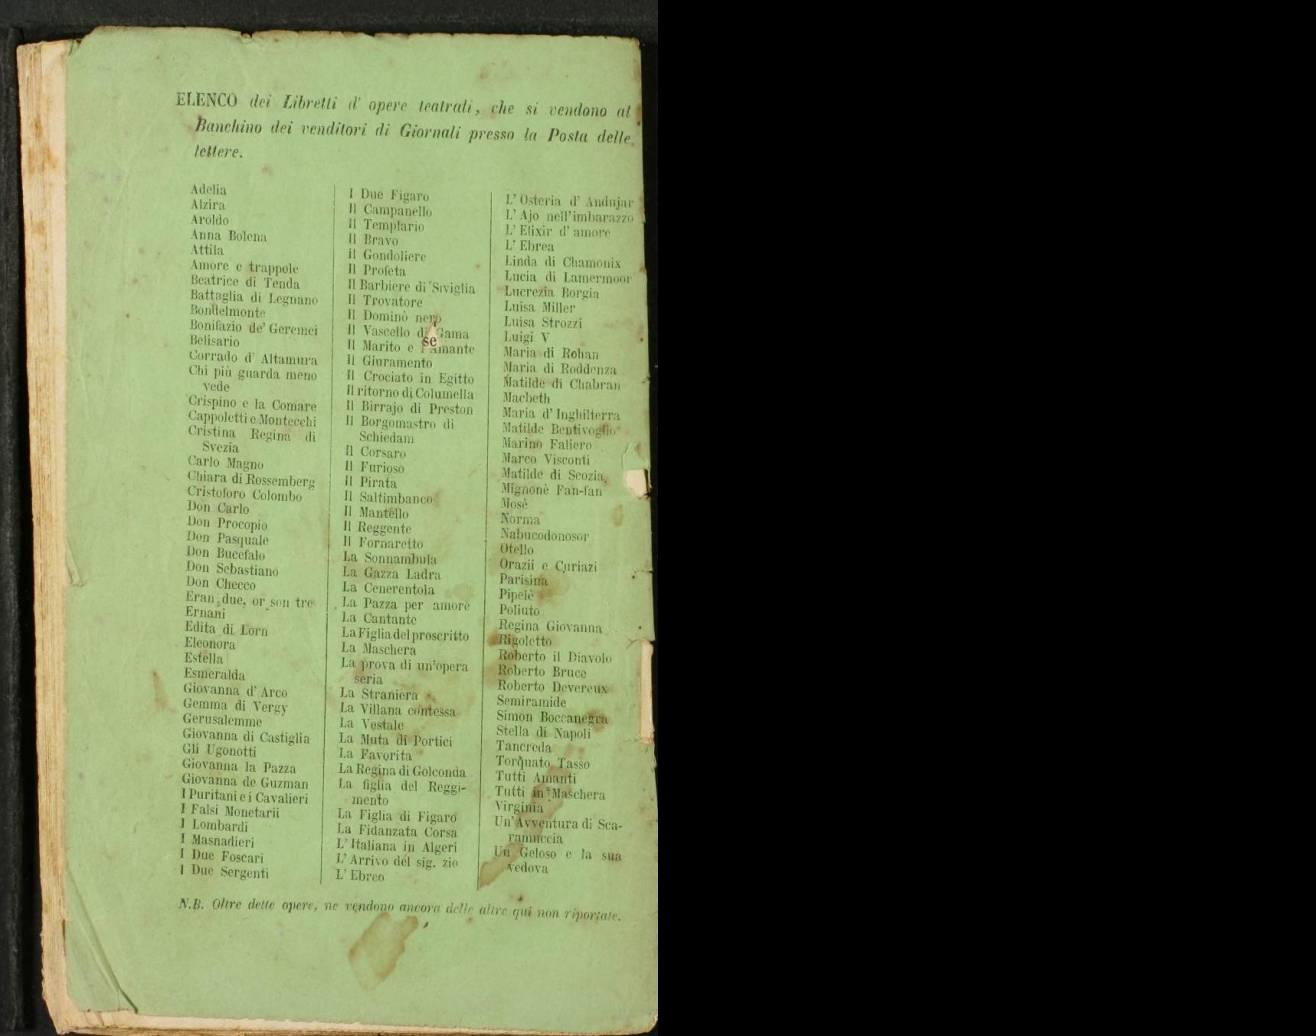 ELENCO dei Libretti d' opere teatrali, che si vendono al
Banchino dei venditori di Giornali presso la Posta delle
lettere.
Adelia
Alzira
Aroldo
Anna Bolena
Attila
Amore e trappole
Beatrice di Tenda
Battaglia di Legnano
Bondelmonte
Bonifazio de' Geremei
Belisario
Corrado d' Altamura
Chi più guarda meno
vede
Crispino e la Comare
Cappoletti e Montecchi
Cristina Regina di
Svezia
Carlo Magno
Chiara di Rossemberg
Cristoforo Colombo
Don Carlo
Don Procopio
Don Pasquale
Don Bucefalo
Don Sebastiano
Don Checco
Eran due, or son tre
Ernani
Edita di Lorn
Eleonora
Estella
Esmeralda
Giovanna d' Arco
Gemma di Vergy
Gerusalemme
Giovanna di Castiglia
Gli Ugonotti
Giovanna la Pazza
Giovanna de Guzman
I Puritani e i Cavalieri
I Falsi Monetarii
I Lombardi
I Masnadieri
I Due Foscari
I Due Sergenti
I Due Figaro
Il Campanello
Il Templario
Il Bravo
il Gondoliere
Il Profeta
Il Barbiere di Siviglia
Il Trovatore
Il Dominò nero
Il Vascello di Gama
se
Il Marito e l'Amante
Il Giuramento
Il Crociato in Egitto
Il ritorno di Columella
Il Birrajo di Preston
Il Borgomastro di
Schiedam
Il Corsaro
Il Furioso
Il Pirata
Il Saltimbanco
Il Mantello
Il Reggente
Il Fornaretto
La Sonnambula
La Gazza Ladra
La Cenerentola
La Pazza per amore
La Cantante
La Figlia del proscritto
La Maschera
La prova di un'opera
seria
La Straniera
La Villana contessa
La Vestale
La Muta di Portici
La Favorita
La Regina di Golconda
La figlia del Reggi-
mento
La Figlia di Figaro
La Fidanzata Corsa
L' Italiana in Algeri
L' Arrivo del sig. zio
L' Ebreo
L' Osteria d' Andujar
L' Ajo nell'imbarazzo
L' Elixir d' amore
L' Ebrea
Linda di Chamonix
Lucia di Lamermoor
Lucrezia Borgia
Luisa Miller
Luisa Strozzi
Luigi V
Maria di Rohan
Maria di Roddenza
Matilde di Chabran
Macbeth
Maria d' Inghilterra
Matilde Bentivoglio
Marino Faliero
Marco Visconti
Matilde di Scozia
Mignonè Fan-fan
Mosè
Norma
Nabucodonosor
Otello
Orazii e Curiazi
Parisina
Pipelè
Poliuto
Regina Giovanna
Rigoletto
Roberto il Diavolo
Roberto Bruce
Roberto Devereux
Semiramide
Simon Boccanegra
Stella di Napoli
Tancreda
Torquato Tasso
Tutti Amanti
Tutti in Maschera
Virginia
Un' Avventura di Sca-
ramuccia
Un Geloso e la sua
vedova
N.B. Oltre dette opere, ne vendono ancora delle altre qui non riportate.